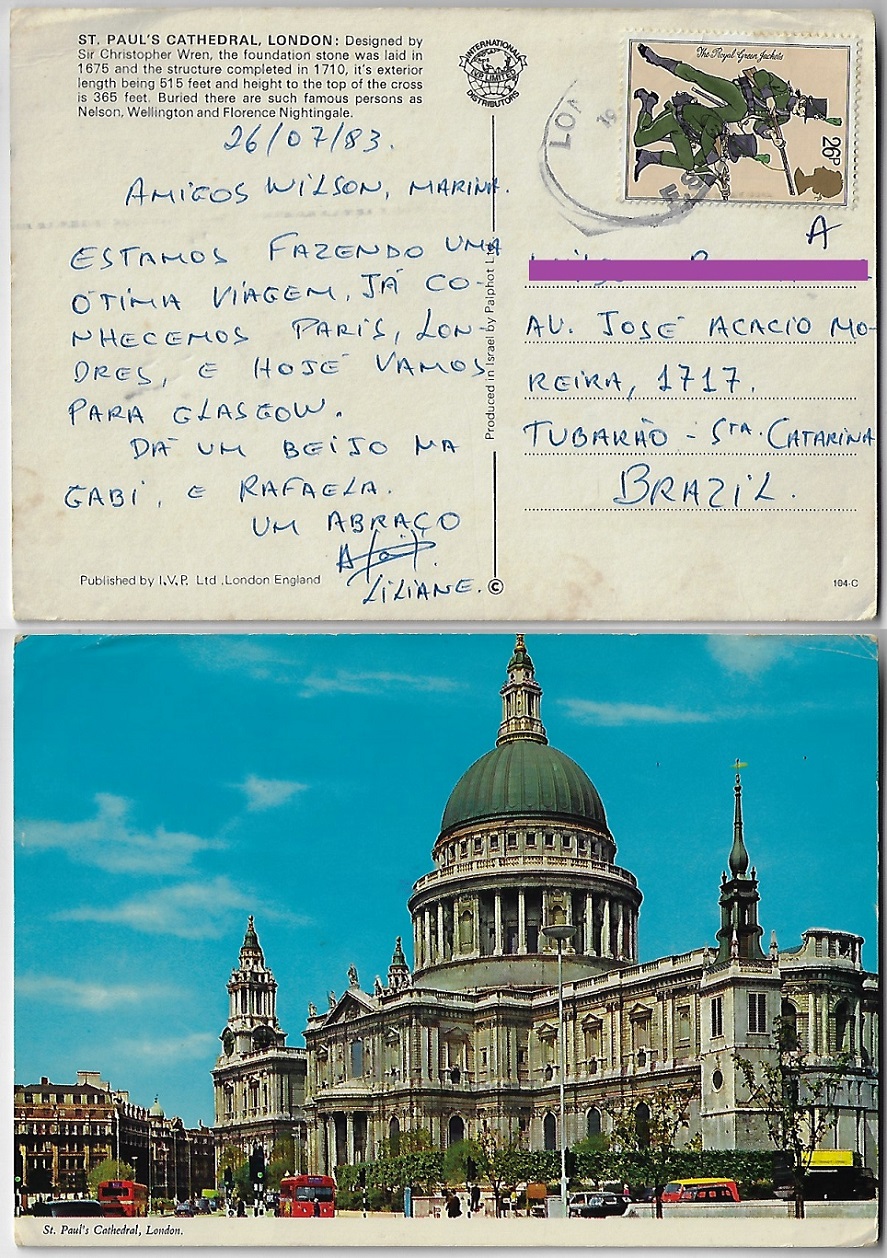 ST. PAUL'S CATHEDRAL, LONDON: Designed by
Sir Christopher Wren, the foundation stone was laid in
1675 and the structure completed in 1710, it's exterior
length being 515 feet and height to the top of the cross
is 365 feet. Buried there are such famous persons as
Nelson, Wellington and Florence Nightingale.
INTERNATIONAL
I.V.P. LIMITED
DISTRIBUTORS
The Royal Green Jackets
26P
LON
26/07/83.
AMIGOS WILSON, MARINA.
ESTAMOS FAZENDO UMA
ÓTIMA VIAGEM, JÁ CO-
NHECEMOS PARIS, LON-
DRES, E HOJE VAMOS
PARA GLASGOW.
DÁ UM BEIJO NA
GABI, E RAFAELA.
UM ABRAÇO
LILIANE.
Produced in Israel by Palphot Ltd.
A
AV. JOSÉ ACACIO MO-
REIRA, 1717.
TUBARÃO - STA. CATARINA
BRAZIL.
Published by I.V.P. Ltd., London England
©
104-C
St. Paul's Cathedral, London.